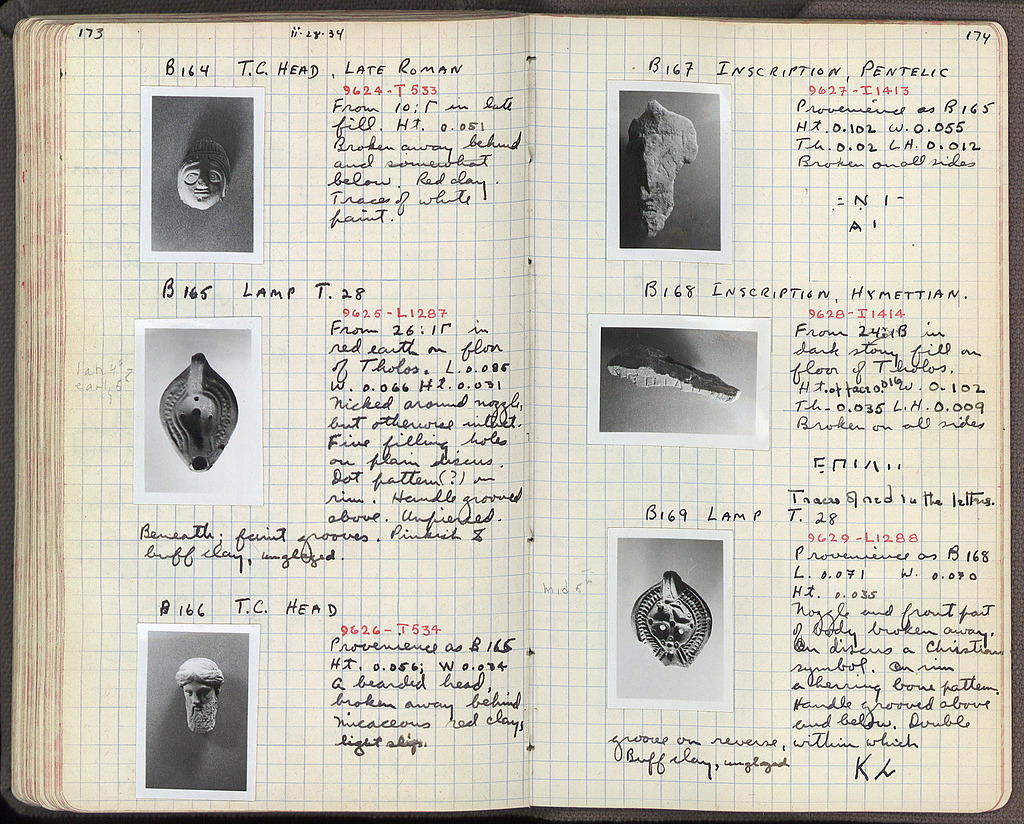 173
ii·28·34
B164 T.C. HEAD, LATE ROMAN
9624-T533
From 10:Γ in late
fill. Ht. 0.051
Broken away behind
and somewhat
below. Red clay.
Traces of white
paint.
B165 LAMP T. 28
9625-L1287
From 26:ΙΓ in
red earth on floor
of Tholos. L. 0.085
W. 0.066 Ht. 0.031
Nicked around nozzle,
but otherwise intact.
Five filling holes
on plain discus.
Dot pattern(?) on
rim. Handle grooved
above. Unpierced.
Beneath; faint grooves. Pinkish &
buff clay, unglazed.
late 4th?
early 5
B166 T.C. HEAD
9626-T534
Provenience as B165
Ht. 0.056; W 0.034
A bearded head,
broken away behind
Micaceous red clay,
light slip.
174
B167 INSCRIPTION, PENTELIC
9627-I1413
Provenience as B165
Ht. 0.102 W. 0.055
Th. 0.02 L.H. 0.012
Broken on all sides
= N I -
A I
B168 INSCRIPTION, HYMETTIAN.
9628-I1414
From 24:ΙΒ in
dark stony fill on
floor of Tholos.
Ht. of face 0.016 W. 0.102
Th. 0.035 L.H. 0.009
Broken on all sides
Traces of red in the letters.
B169 LAMP T. 28
9629-L1288
Provenience as B168
L. 0.071 W. 0.070
Ht. 0.035
Nozzle and front part
of body broken away.
On discus a Christian
symbol. On rim
a herring bone pattern.
Handle grooved above
and below. Double
groove on reverse, within which
Buff clay, unglazed
mid 5th